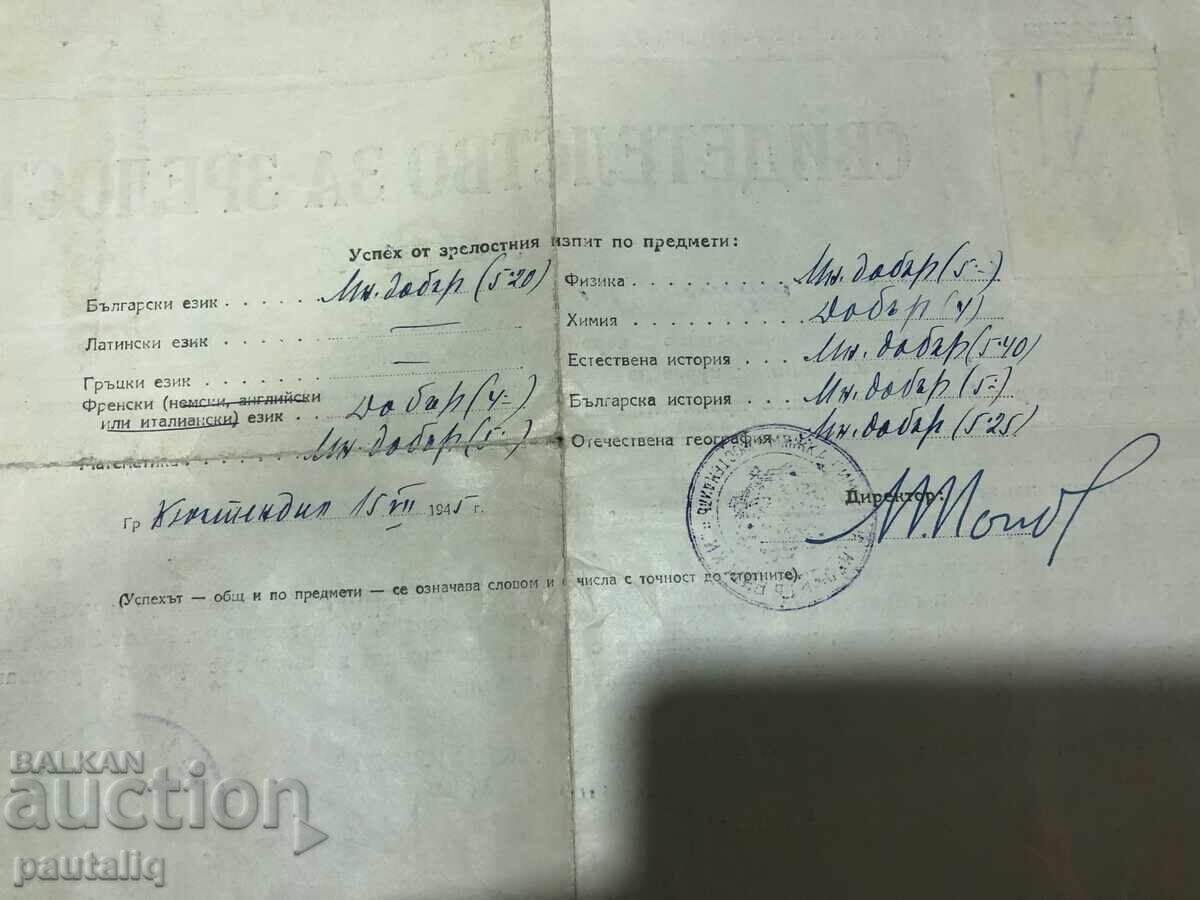 СВИДЕТЕЛСТВО ЗА ЗРЕЛОСТ
Успех от зрелостния изпит по предмети:
Български език . . . . . . Мн. добър (5·20)
Латински език . . . . . . —
Гръцки език . . . . . . —
Френски (немски, английски
или италиански) език . . Добър (4-)
Математика . . . . . . Мн. добър (5-)
Физика . . . . . . . . . Мн. добър (5-)
Химия . . . . . . . . . Добър (4)
Естествена история . . . Мн. добър (5·40)
Българска история . . . . Мн. добър (5-)
Отечествена география Мн. добър (5·25)
Гр Кюстендил 15 VII 1945 г.
Директор:
(Успехът — общ и по предмети — се означава словом и с числа с точност до стотните).
BALKAN
auction
pautaliq